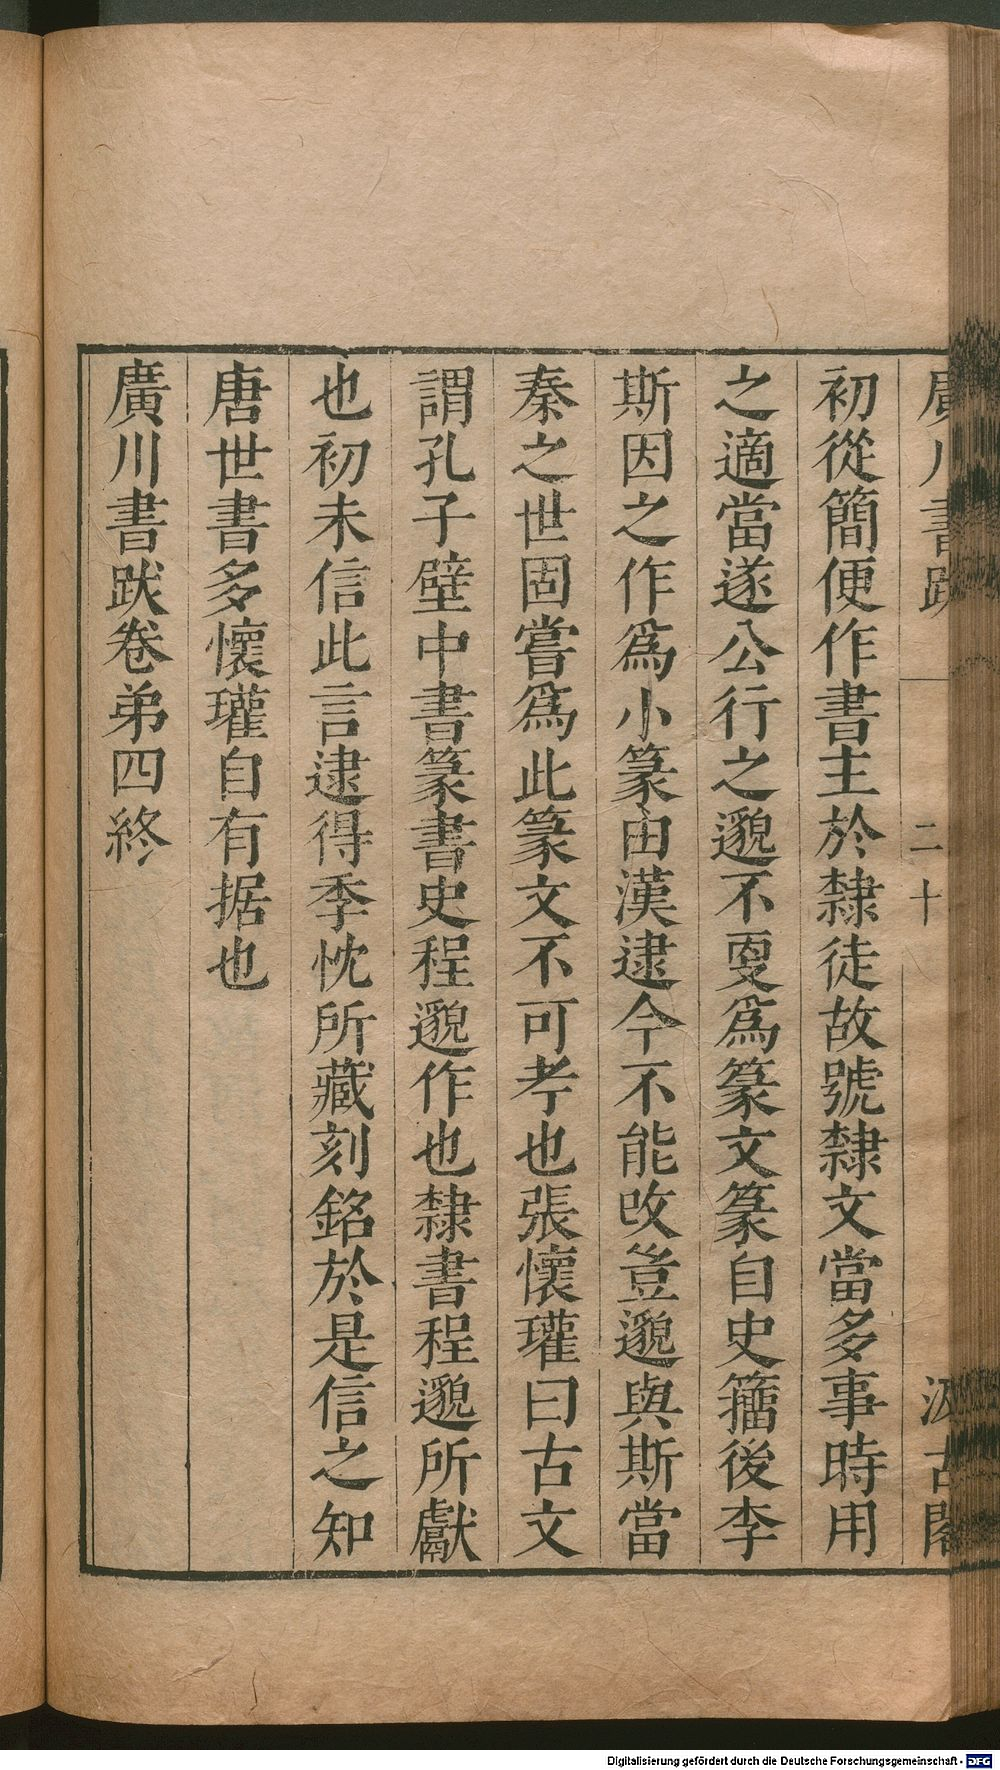 廣川書跋 二十 汲古閣
初從簡便作書主於隸徒故號隸文當多事時用
之適當遂公行之邈不更爲篆文篆自史籒後李
斯因之作爲小篆由漢逮今不能改豈邈與斯當
秦之世固嘗爲此篆文不可考也張懷瓘曰古文
謂孔子壁中書篆書史程邈作也隸書程邈所獻
也初未信此言逮得季忱所藏刻銘於是信之知
唐世書多懷瓘自有据也
廣川書跋卷弟四終
Digitalisierung gefördert durch die Deutsche Forschungsgemeinschaft - DFG